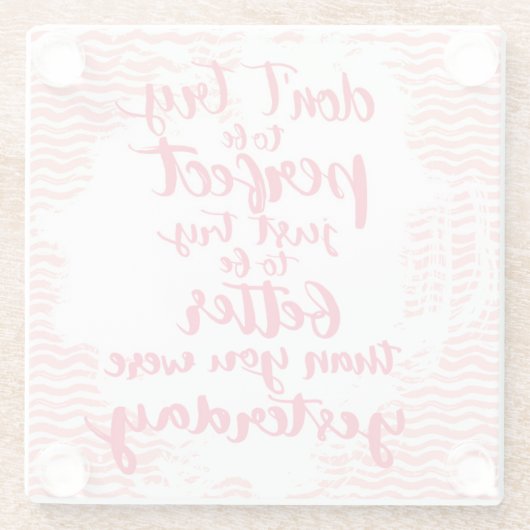 don't try
to be
perfect
just try
to be
better
than you were
yesterday